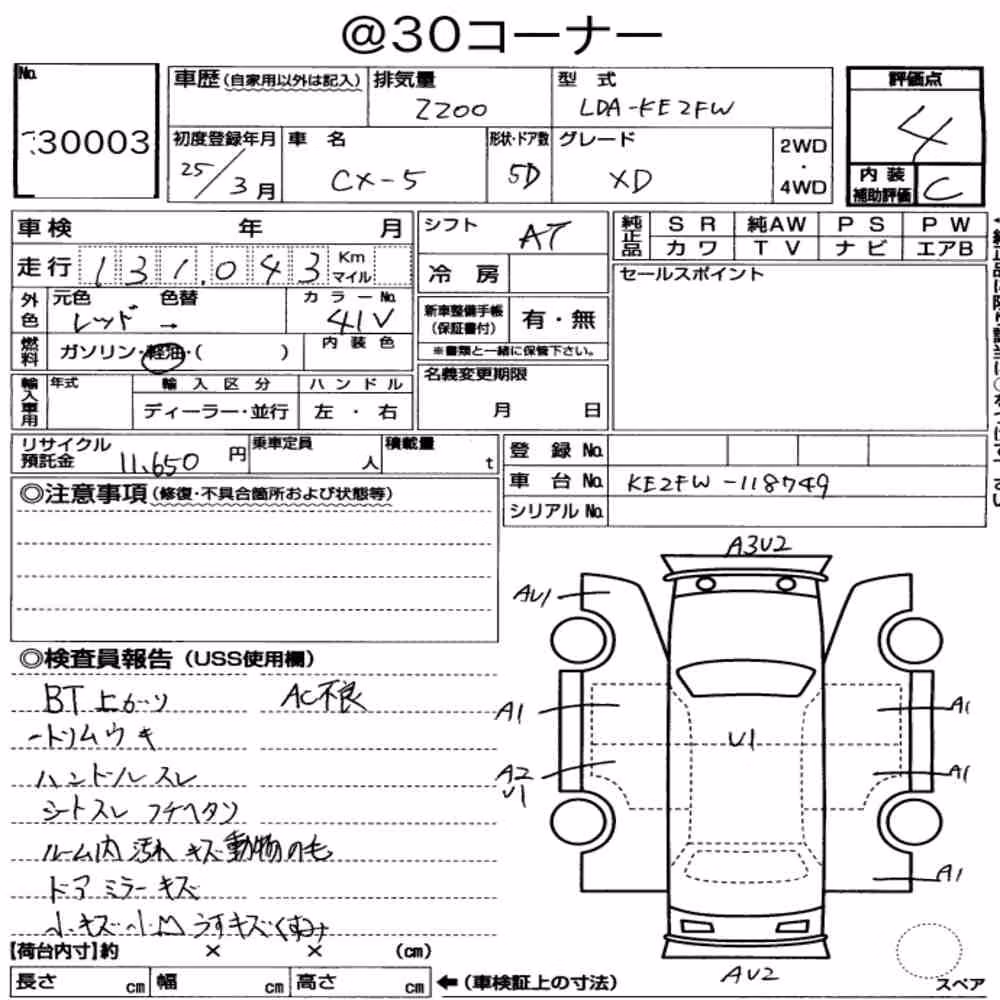 @30コーナー
No.
30003
車歴(自家用以外は記入) 排気量 2200
型式 LDA-KE2FW
評価点 4
初度登録年月 25/3月
車名 CX-5
形状・ドア数 5D
グレード XD
2WD・4WD
内装補助評価 C
車検 年 月
シフト AT
純正品 SR 純AW PS PW
カワ TV ナビ エアB
走行 131,043 Km マイル
冷房
セールスポイント
外色 元色 レッド 色替 → カラーNo. 41V
新車整備手帳(保証書付) 有・無
※書類と一緒に保管下さい。
燃料 ガソリン・軽油・( ) 内装色
輸入車用 年式 輸入区分 ハンドル
ディーラー・並行 左・右
名義変更期限
月 日
リサイクル預託金 11,650円 乗車定員 人 積載量 t
登録No.
車台No. KE2FW-118749
シリアルNo.
◎注意事項(修復・不具合箇所および状態等)
◎検査員報告(USS使用欄)
BT上カツ AC不良
ートリムウキ
ハンドル スレ
シートスレ フチヘタリ
ルーム内 汚れ キズ 動物のモ
ドアミラーキズ
小キズ小凹 うすキズくすみ
A3U2
AU1
A1
A2
U1
U1
A1
A1
A1
AU2
スペア
【荷台内寸】約 × × (cm)
長さ cm 幅 cm 高さ cm ←(車検証上の寸法)